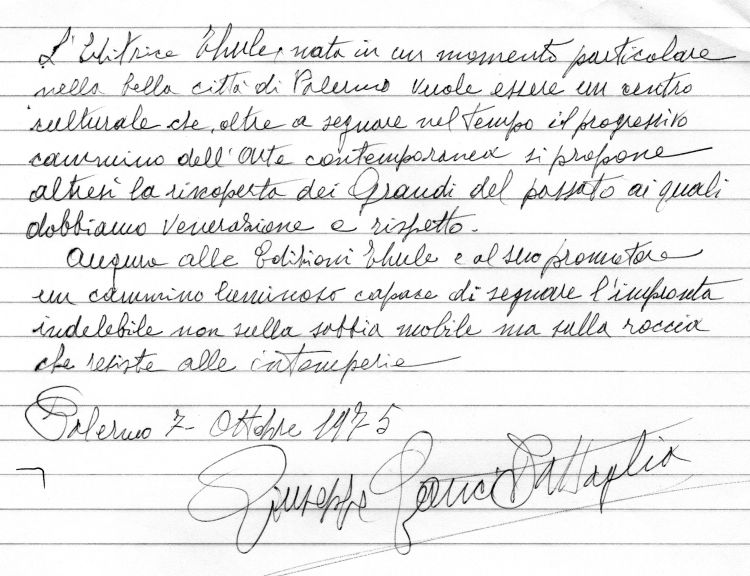 L'Editrice Thule, nata in un momento particolare
nella bella città di Palermo vuole essere un centro
culturale che, oltre a segnare nel tempo il progressivo
cammino dell'Arte contemporanea si propone
altresì la riscoperta dei Grandi del passato ai quali
dobbiamo venerazione e rispetto.
Auguro alle Edizioni Thule e al suo promotore
un cammino luminoso capace di segnare l'impronta
indelebile non sulla sabbia mobile ma sulla roccia
che resiste alle intemperie
Palermo 7- Ottobre 1975
Giuseppe Ganci Battaglia